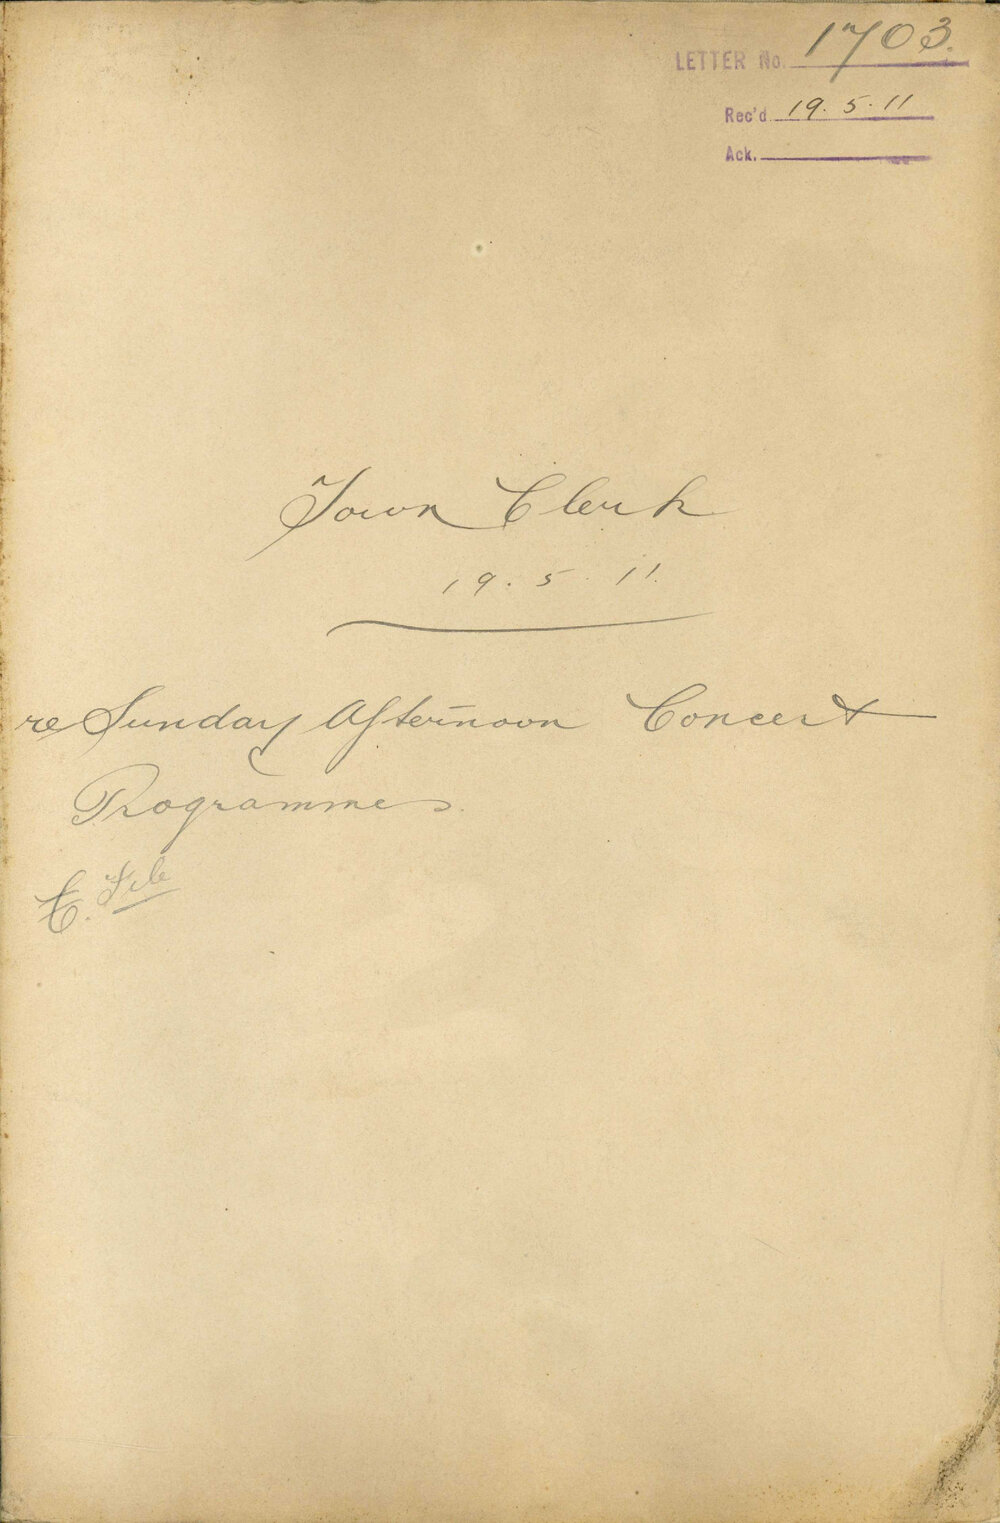 LETTER No. 1703.
Rec'd 19.5.11
Ack.
Town Clerk
19.5.11.
re Sunday Afternoon Concert
Programmes.